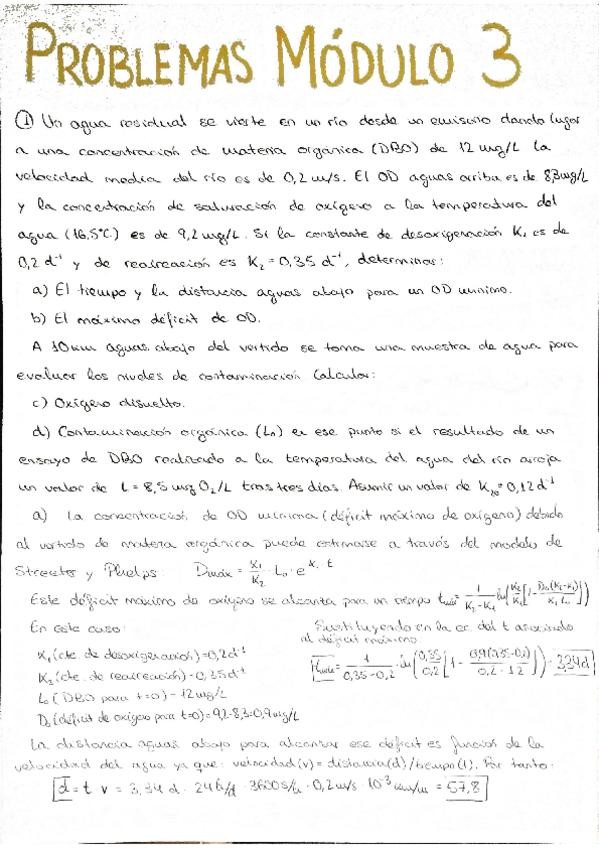 PROBLEMAS MÓDULO 3
① Un agua residual se vierte en un río desde un emisario dando lugar
a una concentración de materia orgánica (DBO) de 12 mg/L. La
velocidad media del río es de 0,2 m/s. El OD aguas arriba es de 8,3 mg/L
y la concentración de saturación de oxígeno a la temperatura del
agua (16,5°C) es de 9,2 mg/L. Si la constante de desoxigenación K₁ es de
0,2 d⁻¹ y de reaireación es K₂ = 0,35 d⁻¹, determinar:
a) El tiempo y la distancia aguas abajo para un OD mínimo.
b) El máximo déficit de OD.
A 10 km aguas abajo del vertido se toma una muestra de agua para
evaluar los niveles de contaminación. Calcular:
c) Oxígeno disuelto.
d) Contaminación orgánica (L₀) en ese punto si el resultado de un
ensayo de DBO realizado a la temperatura del agua del río arroja
un valor de L = 8,5 mg O₂/L tras tres días. Asumir un valor de K₂₀ = 0,12 d⁻¹
a) La concentración de OD mínima (déficit máximo de oxígeno) debido
al vertido de materia orgánica puede estimarse a través del modelo de
Streeter y Phelps: Dmáx = K₁/K₂ · L₀ · e^K₁·t
Este déficit máximo de oxígeno se alcanza para un tiempo tmáx = 1/(K₂-K₁) ln{K₂/K₁[1 - D₀(K₂-K₁)/(K₁L₀)]}
En este caso:
K₁ (cte. de desoxigenación) = 0,2 d⁻¹
K₂ (cte. de reaireación) = 0,35 d⁻¹
L₀ (DBO para t=0) = 12 mg/L
D₀ (déficit de oxígeno para t=0) = 9,2-8,3 = 0,9 mg/L
Sustituyendo en la ec. del t asociado
al déficit máximo:
tmáx = 1/(0,35-0,2) · ln(0,35/0,2 [1 - 0,9(0,35-0,2)/(0,2·12)]) = 3,34 d
La distancia aguas abajo para alcanzar ese déficit es función de la
velocidad del agua ya que: velocidad (v) = distancia (d) / tiempo (t). Por tanto:
d = t · v = 3,34 d · 24 h/d · 3600 s/h · 0,2 m/s · 10⁻³ km/m = 57,8